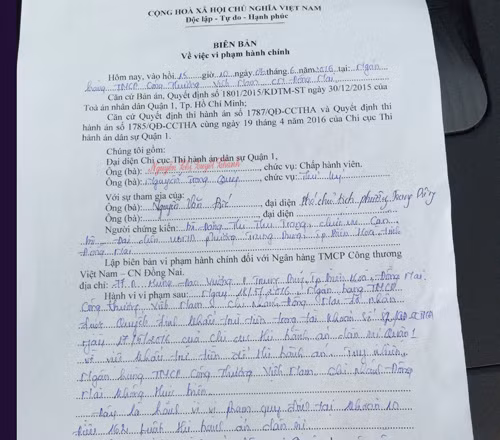 CỘNG HOÀ XÃ HỘI CHỦ NGHĨA VIỆT NAM
Độc lập - Tự do - Hạnh phúc
BIÊN BẢN
Về việc vi phạm hành chính
Hôm nay, vào hồi 15 giờ 10 ngày tháng 6 năm 2016 tại: Ngân
hàng TMCP Công Thương Việt Nam CN Đồng Nai
Căn cứ Bản án, Quyết định số 1801/2015/KDTM-ST ngày 30/12/2015 của
Toà án nhân dân Quận 1, Tp. Hồ Chí Minh;
Căn cứ Quyết định thi hành án số 1787/QĐ-CCTHA và Quyết định thi
hành án số 1785/QĐ-CCTHA cùng ngày 19 tháng 4 năm 2016 của Chi cục Thi
hành án dân sự Quận 1.
Chúng tôi gồm:
Đại diện Chi cục Thi hành án dân sự Quận 1,
Ông (bà): Nguyễn Thị Tuyết Thanh, chức vụ: Chấp hành viên.
Ông (bà): Nguyễn Trọng Quy, chức vụ: Thư ký
Với sự tham gia của:
Ông (bà): Nguyễn Văn, đại diện Phó chủ tịch phường Trung Dũng
Ông (bà): đại diện
Người chứng kiến: Bà Đặng Thị Thu Trang, chức vụ: Cán
bộ - Đại diện UBND phường Trung Dũng, Tp Biên Hoà, tỉnh
Đồng Nai
Lập biên bản vi phạm hành chính đối với Ngân hàng TMCP Công thương
Việt Nam – CN Đồng Nai.
địa chỉ: Hùng Vương, P. Trung Dũng, Tp Biên Hoà, Đồng Nai
Hành vi vi phạm sau: Ngày 2016, Ngân hàng TMCP
Công thương Việt Nam chi nhánh Đồng Nai đã nhận
được Quyết định khấu trừ tiền trong tài khoản số
ngày 17/5/2016 của Chi cục thi hành án dân sự Quận 1
về việc khấu trừ tiền để thi hành án. Tuy nhiên,
Ngân hàng TMCP Công Thương Việt Nam chi nhánh Đồng
Nai không thực hiện
Đây là hành vi vi phạm quy định tại khoản 10
điều 162 Luật thi hành án dân sự.